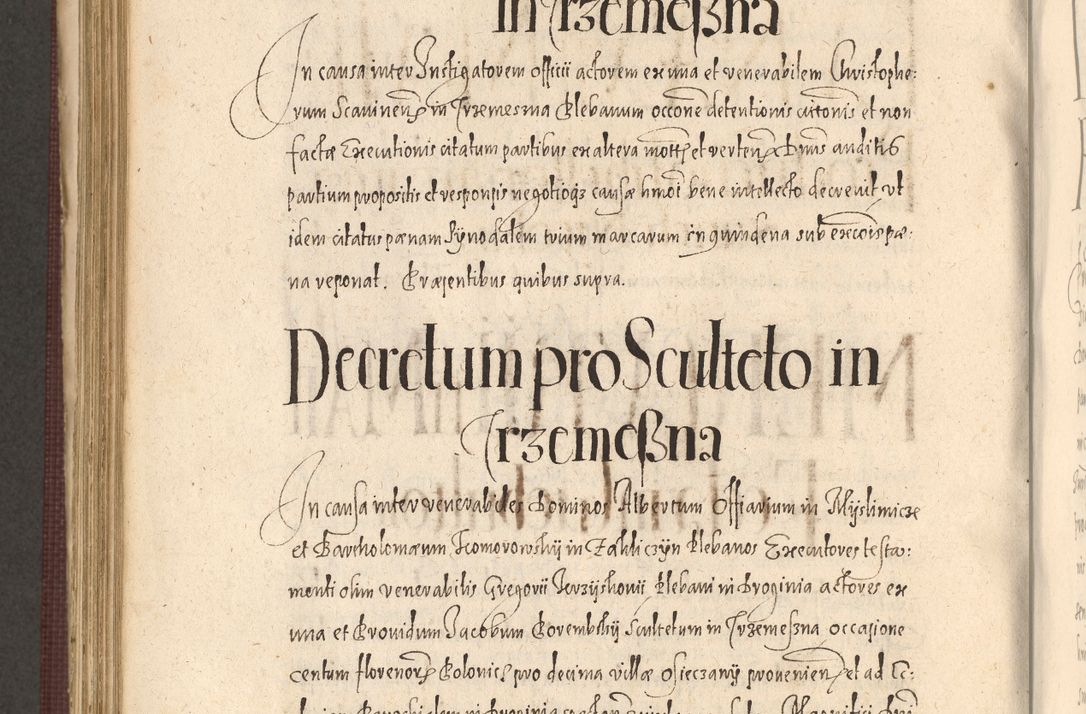 in Trzemeßna
In causa inter Instigatorem officii actorem ex una et venerabilem Christophe:
rum Scavinen in Trzemesma Plebanum occone detentionis citonis et non
factæ Executionis citatum partibus ex altera mott et verten Dnus auditis
partium propositis et responsis negotioq causæ hmoi bene intellecto decrevit ut
idem citatus pænam synodalem trium marcarum in quindena sub excois pæ:
na reponat. Præsentibus quibus supra.
Decretum pro Sculteto in
Trzemeßna
In causa inter venerabiles Dominos Albertum Offiarium in Myslimicze
et Bartholomæum Komorowskij in Zakliczyn Plebanos Executores testa:
menti olim venerabilis Gregorii Jerzykowii Plebani in Droginia actores ex
una et Providum Jacobum Porembskij Scultetum in Trzemeßna occasione
centum florenor Polonic pro decima villæ Osieczany provenien et ad Ec: